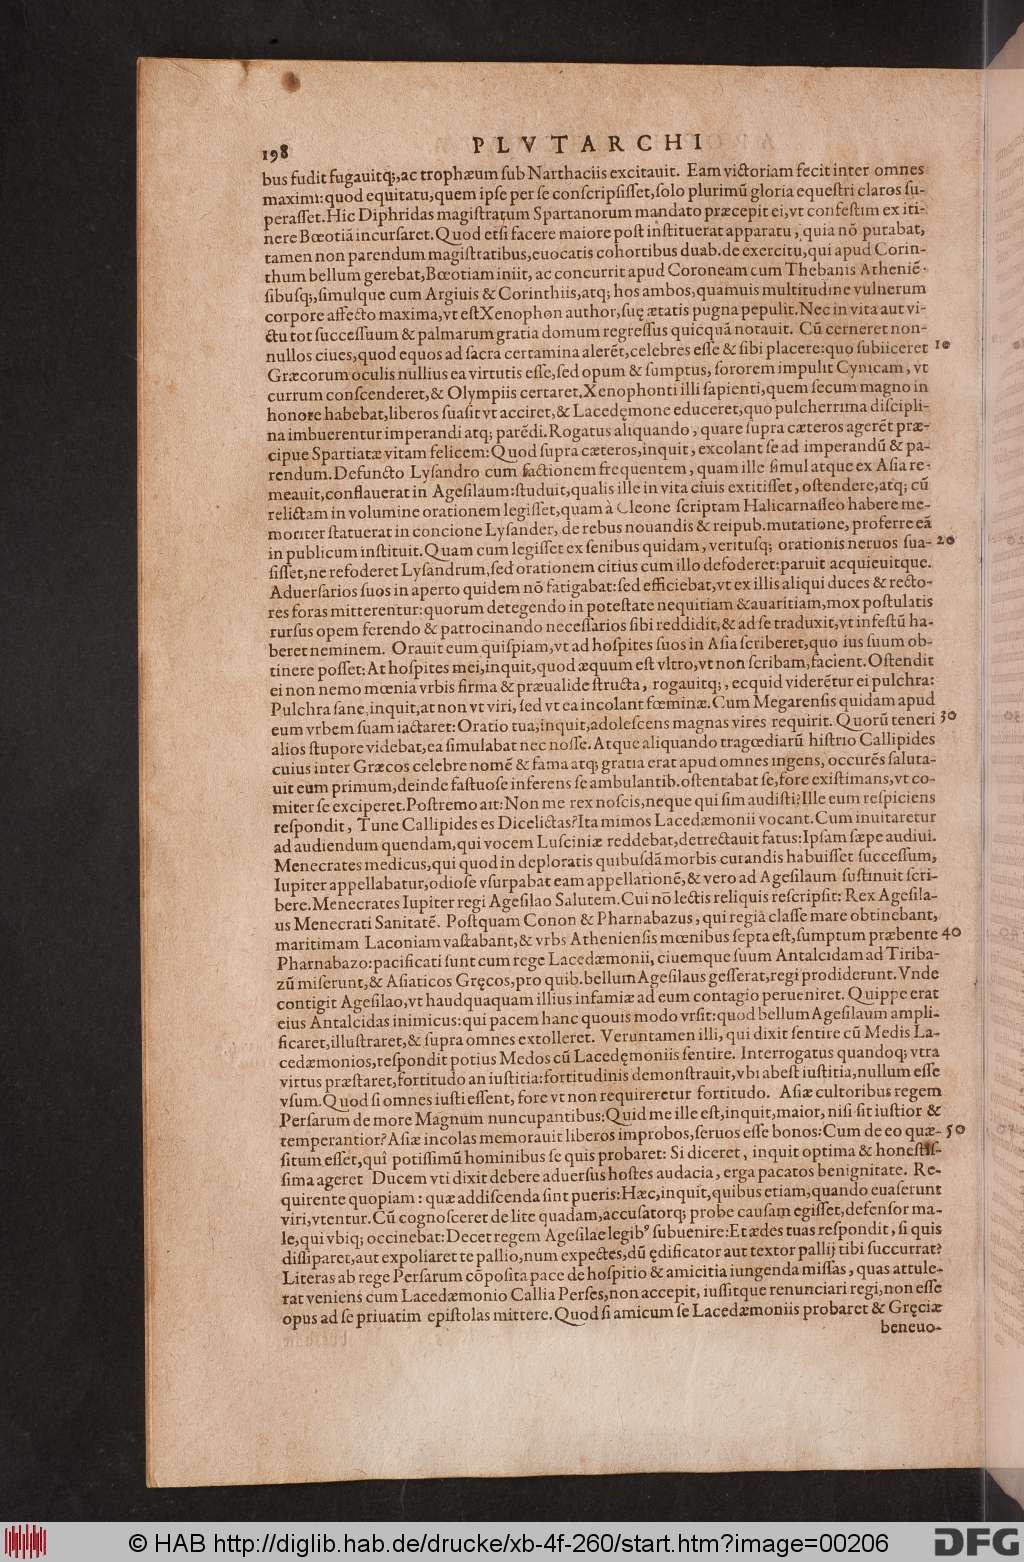 198 PLVTARCHI
bus fudit fugauitq;,ac trophæum ſub Narthaciis excitauit. Eam victoriam fecit inter omnes
maximi:quod equitatu,quem ipſe per ſe conſcripſiſſet,ſolo plurimũ gloria equeſtri claros ſu-
peraſſet.Hic Diphridas magiſtratum Spartanorum mandato præcepit ei,vt confeſtim ex iti-
nere Bœotiã incurſaret.Quod etſi facere maiore poſt inſtituerat apparatu, quia nõ putabat,
tamen non parendum magiſtratibus,euocatis cohortibus duab.de exercitu,qui apud Corin-
thum bellum gerebat,Bœotiam iniit, ac concurrit apud Coroneam cum Thebanis Atheniẽ-
ſibuſq;,ſimulque cum Argiuis & Corinthiis,atq; hos ambos,quamuis multitudine vulnerum
corpore affecto maxima,vt eſt Xenophon author,ſuę ætatis pugna pepulit.Nec in vita aut vi-
ctu tot ſucceſſuum & palmarum gratia domum regreſſus quicquã notauit. Cũ cerneret non-
nullos ciues,quod equos ad ſacra certamina alerẽt,celebres eſſe & ſibi placere:quo ſubiiceret 10
Græcorum oculis nullius ea virtutis eſſe,ſed opum & ſumptus, ſororem impulit Cynicam, vt
currum conſcenderet,& Olympiis certaret.Xenophonti illi ſapienti,quem ſecum magno in
honore habebat,liberos ſuaſit vt acciret,& Lacedęmone educeret,quo pulcherrima diſcipli-
na imbuerentur imperandi atq; parẽdi.Rogatus aliquando, quare ſupra cæteros agerẽt præ-
cipue Spartiatæ vitam felicem:Quod ſupra cæteros,inquit, excolant ſe ad imperandũ & pa-
rendum.Defuncto Lyſandro cum factionem frequentem, quam ille ſimul atque ex Aſia re-
meauit,conflauerat in Ageſilaum:ſtuduit,qualis ille in vita ciuis extitiſſet, oſtendere,atq; cũ
relictam in volumine orationem legiſſet,quam à Cleone ſcriptam Halicarnaſſeo habere me-
moriter ſtatuerat in concione Lyſander, de rebus nouandis & reipub.mutatione, proferre eã
in publicum inſtituit.Quam cum legiſſet ex ſenibus quidam, veritusq; orationis neruos ſua- 20
ſiſſet,ne refoderet Lyſandrum,ſed orationem citius cum illo defoderet:paruit acquieuitque.
Aduerſarios ſuos in aperto quidem nõ fatigabat:ſed efficiebat,vt ex illis aliqui duces & recto-
res foras mitterentur:quorum detegendo in poteſtate nequitiam & auaritiam,mox poſtulatis
rurſus opem ferendo & patrocinando neceſſarios ſibi reddidit,& ad ſe traduxit,vt infeſtũ ha-
beret neminem. Orauit eum quiſpiam,vt ad hoſpites ſuos in Aſia ſcriberet,quo ius ſuum ob-
tinere poſſet:At hoſpites mei,inquit,quod æquum eſt vltro,vt non ſcribam,facient.Oſtendit
ei non nemo mœnia vrbis firma & præualide ſtructa, rogauitq;, ecquid viderẽtur ei pulchra:
Pulchra ſane,inquit,at non vt viri, ſed vt ea incolant fœminæ.Cum Megarenſis quidam apud
eum vrbem ſuam iactaret:Oratio tua,inquit,adoleſcens magnas vires requirit. Quorũ teneri 30
alios ſtupore videbat,ea ſimulabat nec noſſe.Atque aliquando tragœdiarũ hiſtrio Callipides
cuius inter Græcos celebre nomẽ & fama atq; gratia erat apud omnes ingens, occurẽs ſaluta-
uit eum primum,deinde faſtuoſe inferens ſe ambulantib.oſtentabat ſe,fore exiſtimans,vt co-
miter ſe exciperet.Poſtremo ait:Non me rex noſcis,neque qui ſim audiſti?Ille eum reſpiciens
reſpondit, Tune Callipides es Dicelictas?Ita mimos Lacedæmonii vocant.Cum inuitaretur
ad audiendum quendam,qui vocem Luſciniæ reddebat,detrectauit fatus:Ipſam ſæpe audiui.
Menecrates medicus,qui quod in deploratis quibuſdã morbis curandis habuiſſet ſucceſſum,
Iupiter appellabatur,odioſe vſurpabat eam appellationẽ,& vero ad Ageſilaum ſuſtinuit ſcri-
bere.Menecrates Iupiter regi Ageſilao Salutem.Cui nõ lectis reliquis reſcripſit: Rex Ageſila-
us Menecrati Sanitatẽ. Poſtquam Conon & Pharnabazus, qui regià claſſe mare obtinebant,
maritimam Laconiam vaſtabant,& vrbs Athenienſis mœnibus ſepta eſt,ſumptum præbente 40
Pharnabazo:pacificati ſunt cum rege Lacedæmonii, ciuemque ſuum Antalcidam ad Tiriba-
zũ miſerunt,& Aſiaticos Gręcos,pro quib.bellum Ageſilaus geſſerat,regi prodiderunt.Vnde
contigit Ageſilao,vt haudquaquam illius infamiæ ad eum contagio perueniret. Quippe erat
eius Antalcidas inimicus:qui pacem hanc quouis modo vrſit:quod bellum Ageſilaum ampli-
ficaret,illuſtraret,& ſupra omnes extolleret. Veruntamen illi, qui dixit ſentire cũ Medis La-
cedæmonios,reſpondit potius Medos cũ Lacedęmoniis ſentire. Interrogatus quandoq; vtra
virtus præſtaret,fortitudo an iuſtitia:fortitudinis demonſtrauit,vbi abeſt iuſtitia,nullum eſſe
vſum.Quod ſi omnes iuſti eſſent, fore vt non requireretur fortitudo. Aſiæ cultoribus regem
Perſarum de more Magnum nuncupantibus:Quid me ille eſt,inquit,maior, niſi ſit iuſtior &
temperantior?Aſiæ incolas memorauit liberos improbos,ſeruos eſſe bonos:Cum de eo quæ- 50
ſitum eſſet,quî potiſſimũ hominibus ſe quis probaret: Si diceret, inquit optima & honeſtiſ-
ſima ageret Ducem vti dixit debere aduerſus hoſtes audacia, erga pacatos benignitate. Re-
quirente quopiam: quæ addiſcenda ſint pueris:Hæc,inquit,quibus etiam,quando euaſerunt
viri,vtentur.Cũ cognoſceret de lite quadam,accuſatorq; probe cauſam egiſſet,defenſor ma-
le,qui vbiq; occinebat:Decet regem Ageſilae legibꝰ ſubuenire:Et ædes tuas reſpondit, ſi quis
diſſiparet,aut expoliaret te pallio,num expectes,dũ ędificator aut textor pallij tibi ſuccurrat?
Literas ab rege Perſarum cõpoſita pace de hoſpitio & amicitia iungenda miſſas, quas attule-
rat veniens cum Lacedæmonio Callia Perſes,non accepit, iuſſitque renunciari regi,non eſſe
opus ad ſe priuatim epiſtolas mittere.Quod ſi amicum ſe Lacedæmoniis probaret & Gręciæ
beneuo-
© HAB http://diglib.hab.de/drucke/xb-4f-260/start.htm?image=00206
DFG